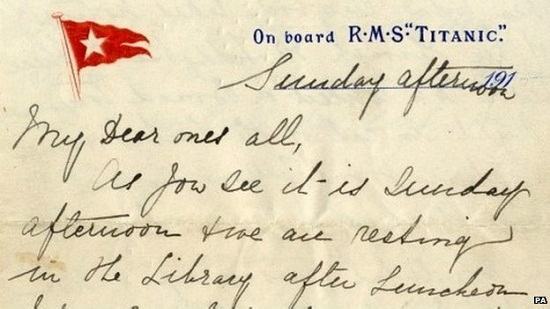 On board R·M·S. "TITANIC."
191
Sunday afternoon
My Dear ones all,
As you see it is Sunday
afternoon & we are resting
in the Library after Luncheon
PA